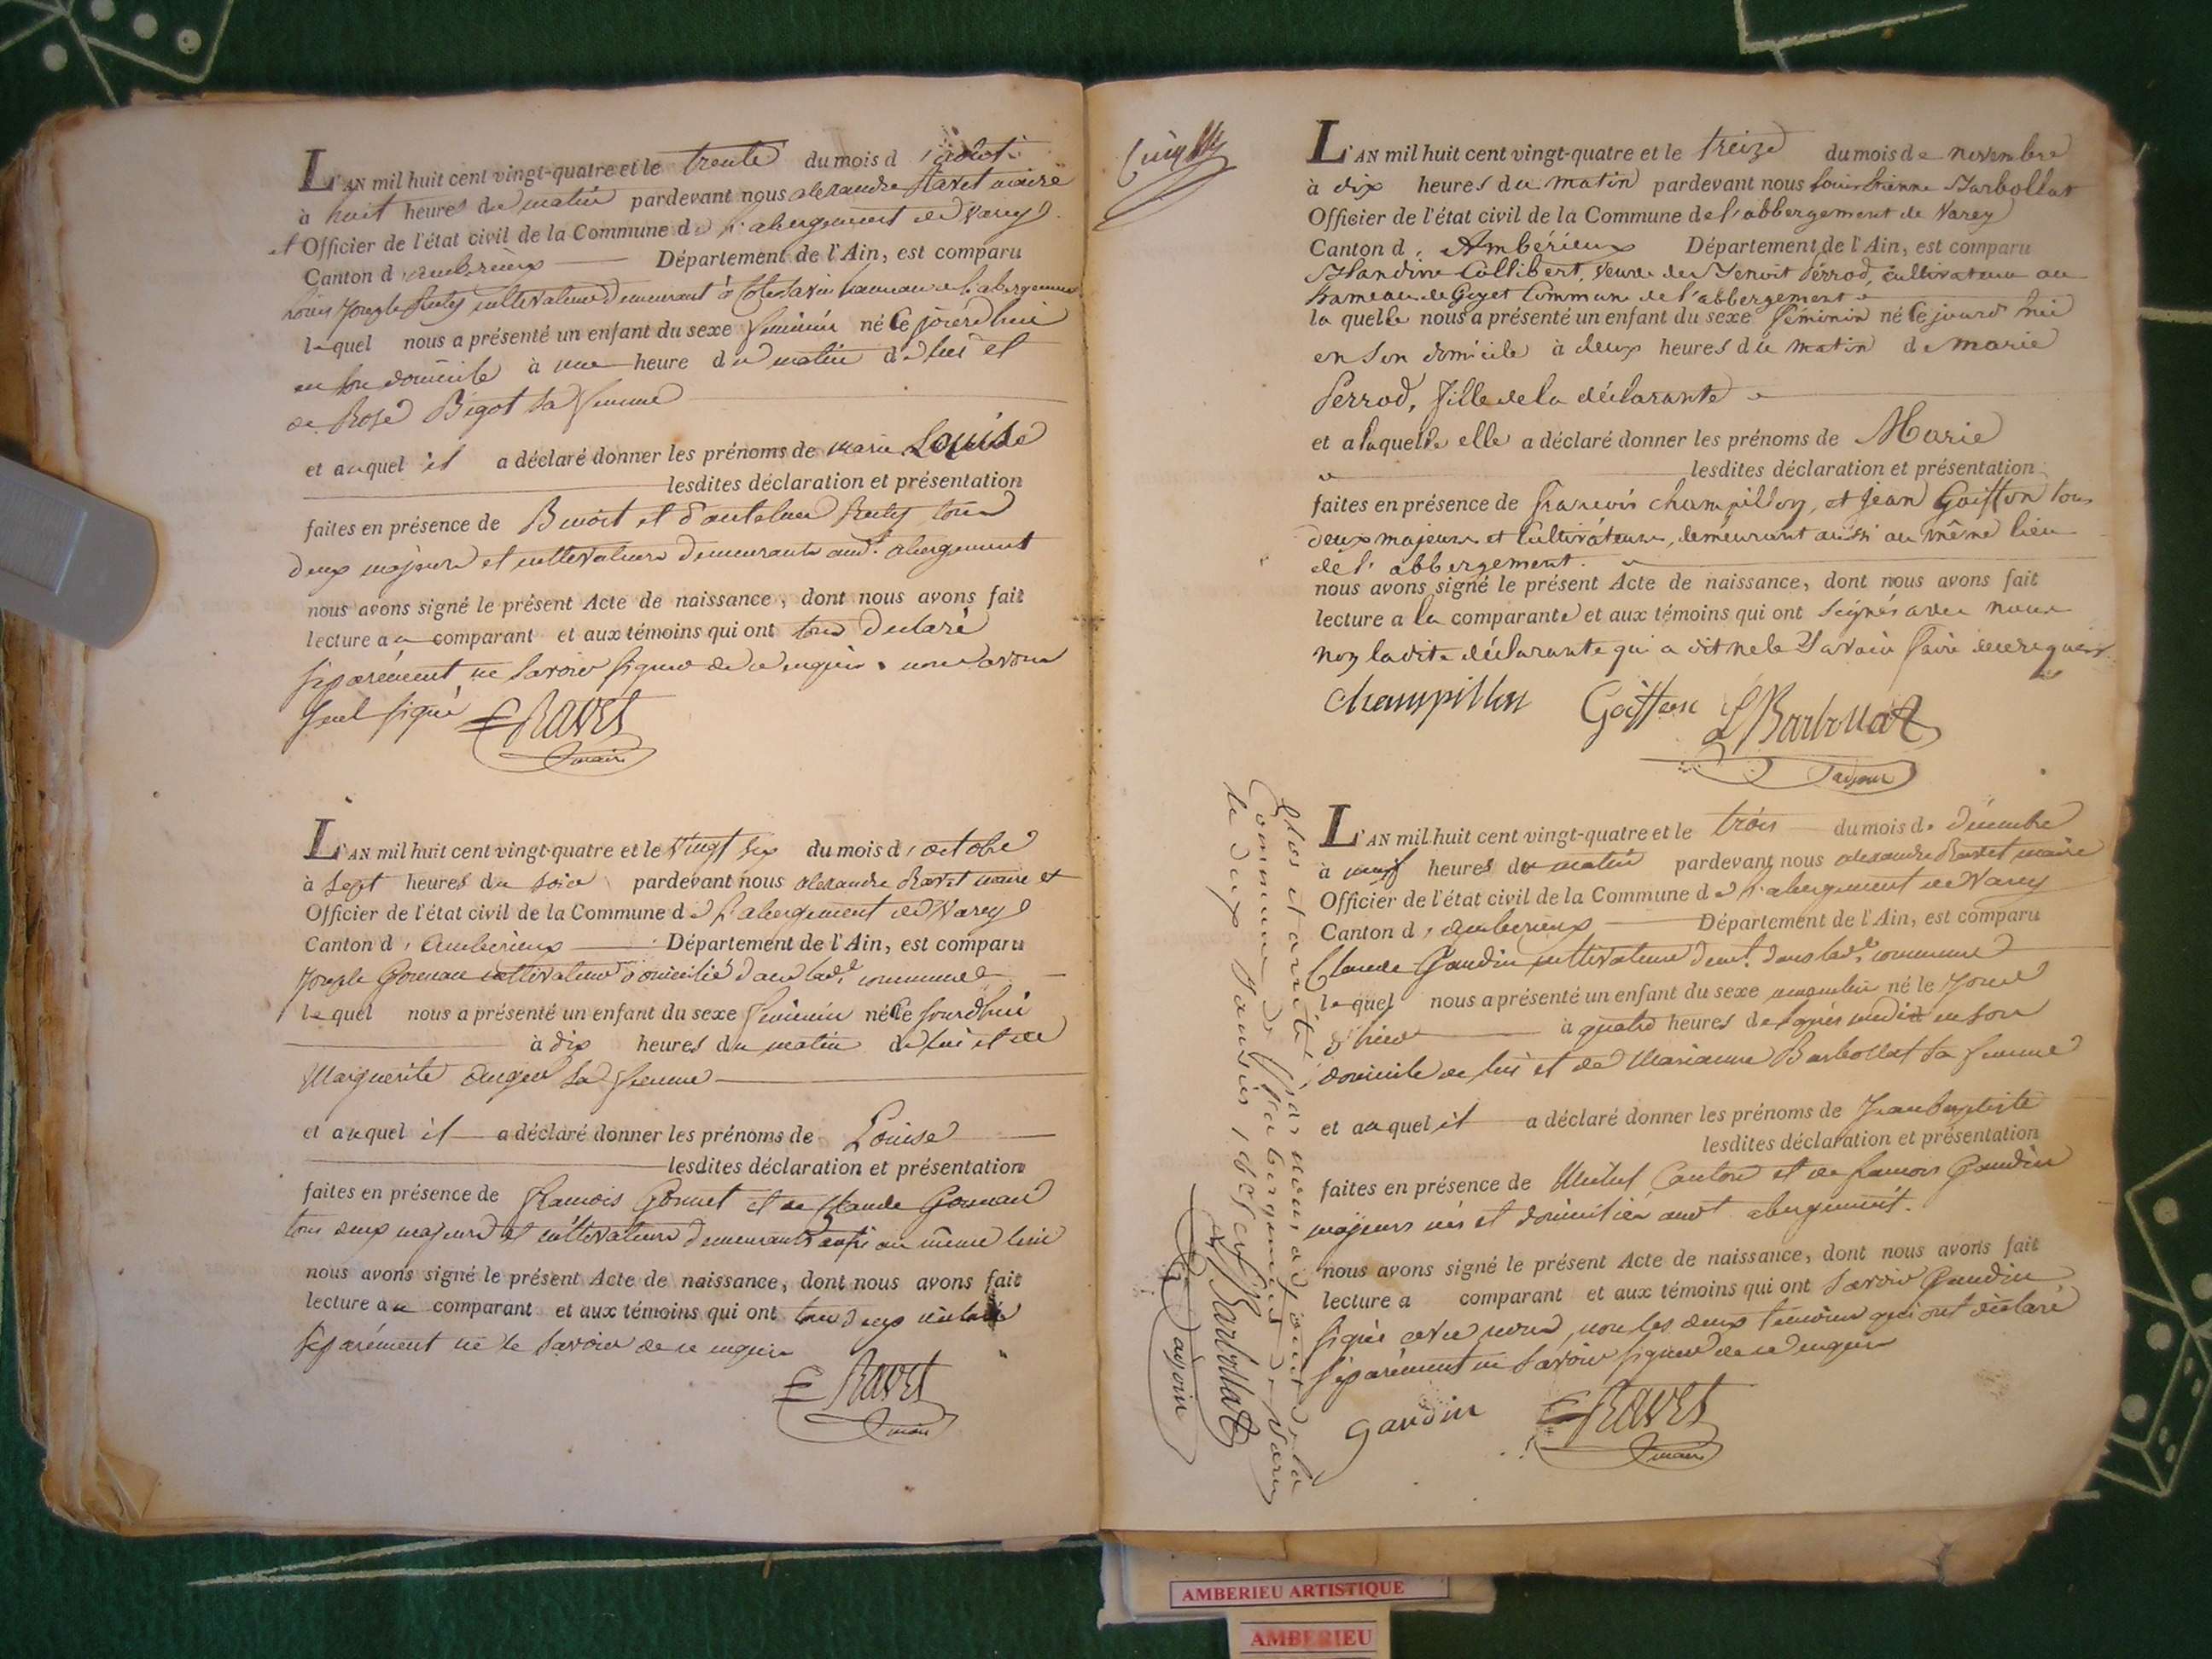 L'AN mil huit cent vingt-quatre et le trente du mois d'Aout
à huit heures du matin pardevant nous alexandre Ravet maire
et Officier de l'état civil de la Commune de l'abergement de Varey
Canton d'amberieux Département de l'Ain, est comparu
Louis Joseph cultivateur demeurant à hameau de l'abergement
lequel nous a présenté un enfant du sexe feminin né Ce jourd'hui
en son domicile à une heure du matin de lui et
de Rose Bigot sa femme
et auquel il a déclaré donner les prénoms de marie Louise
lesdites déclaration et présentation
faites en présence de Benoit et d'antelme tous
deux majeurs et cultivateurs demeurants aud. abergement
nous avons signé le présent Acte de naissance, dont nous avons fait
lecture au comparant et aux témoins qui ont tous declaré
séparément ne savoir signer de ce enquis. nous avons
seul signé Ravet
maire
L'AN mil huit cent vingt-quatre et le vingt six du mois d'octobre
à sept heures du soir pardevant nous alexandre Ravet maire et
Officier de l'état civil de la Commune de l'abergement de Varey
Canton d'amberieux Département de l'Ain, est comparu
Joseph cultivateur domicilié dans lad.e commune
lequel nous a présenté un enfant du sexe feminin né Ce jourdhui
à dix heures du matin de lui et de
Marguerite sa femme
et auquel il a déclaré donner les prénoms de Louise
lesdites déclaration et présentation
faites en présence de francois Gonnet et de Claude
tous deux majeurs et cultivateurs demeurants aussi au même lieu
nous avons signé le présent Acte de naissance, dont nous avons fait
lecture au comparant et aux témoins qui ont tous deux déclaré
séparément ne le savoir de ce enquis
Ravet
maire
L'AN mil huit cent vingt-quatre et le treize du mois de novembre
à dix heures du matin pardevant nous Louis Etienne Barbollat
Officier de l'état civil de la Commune de l'abbergement de Varey
Canton d'Ambérieux Département de l'Ain, est comparu
Claudine Collibert, veuve de Benoit Perrod, cultivateur au
hameau de Goyet Commune de l'abbergement
la quelle nous a présenté un enfant du sexe féminin né Ce jourd'hui
en son domicile à deux heures du matin de marie
Perrod, fille de la déclarante
et a laquelle elle a déclaré donner les prénoms de Marie
lesdites déclaration et présentation
faites en présence de francois champillon, et jean Goiffon tous
deux majeurs et Cultivateurs, demeurant aussi au même lieu
de l'abbergement.
nous avons signé le présent Acte de naissance, dont nous avons fait
lecture a la comparante et aux témoins qui ont signés avec nous
non ladite déclarante qui a dit ne le savoir faire de ce enquis
champillon Goiffon L Barbollat
adjoint
L'AN mil huit cent vingt-quatre et le trois du mois de décembre
à neuf heures du matin pardevant nous alexandre Ravet maire
Officier de l'état civil de la Commune de l'abergement de Varey
Canton d'amberieux Département de l'Ain, est comparu
Claude Gaudin cultivateur demt. dans lad.e commune
lequel nous a présenté un enfant du sexe masculin né le jour
d'hier à quatre heures de après midi en son
domicile de lui et de Marianne Barbollat sa femme
et auquel il a déclaré donner les prénoms de Jean baptiste
lesdites déclaration et présentation
faites en présence de et de francois Gaudin
majeurs nés et domiciliés audt abergement.
nous avons signé le présent Acte de naissance, dont nous avons fait
lecture a comparant et aux témoins qui ont savoir Gaudin
signé avec nous, non les deux temoins qui ont déclaré
séparément ne savoir signer de ce enquis
gaudin Ravet
maire
Clos et arrêté par nous adjoint de la
Commune de l'abergement de Varey
le deux janvier 1825
L Barbollat
adjoint
AMBERIEU ARTISTIQUE
AMBERIEU